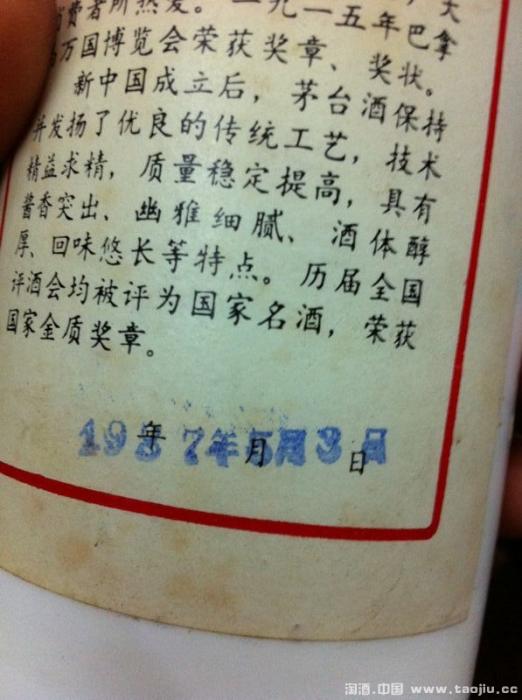 消费者所热爱。一九一五年巴拿
万国博览会荣获奖章、奖状。
新中国成立后，茅台酒保持
并发扬了优良的传统工艺，技术
精益求精，质量稳定提高，具有
酱香突出、幽雅细腻、酒体醇
厚、回味悠长等特点。历届全国
评酒会均被评为国家名酒，荣获
国家金质奖章。
年 月 日
1987年5月3日
淘酒.中国 www.taojiu.cc